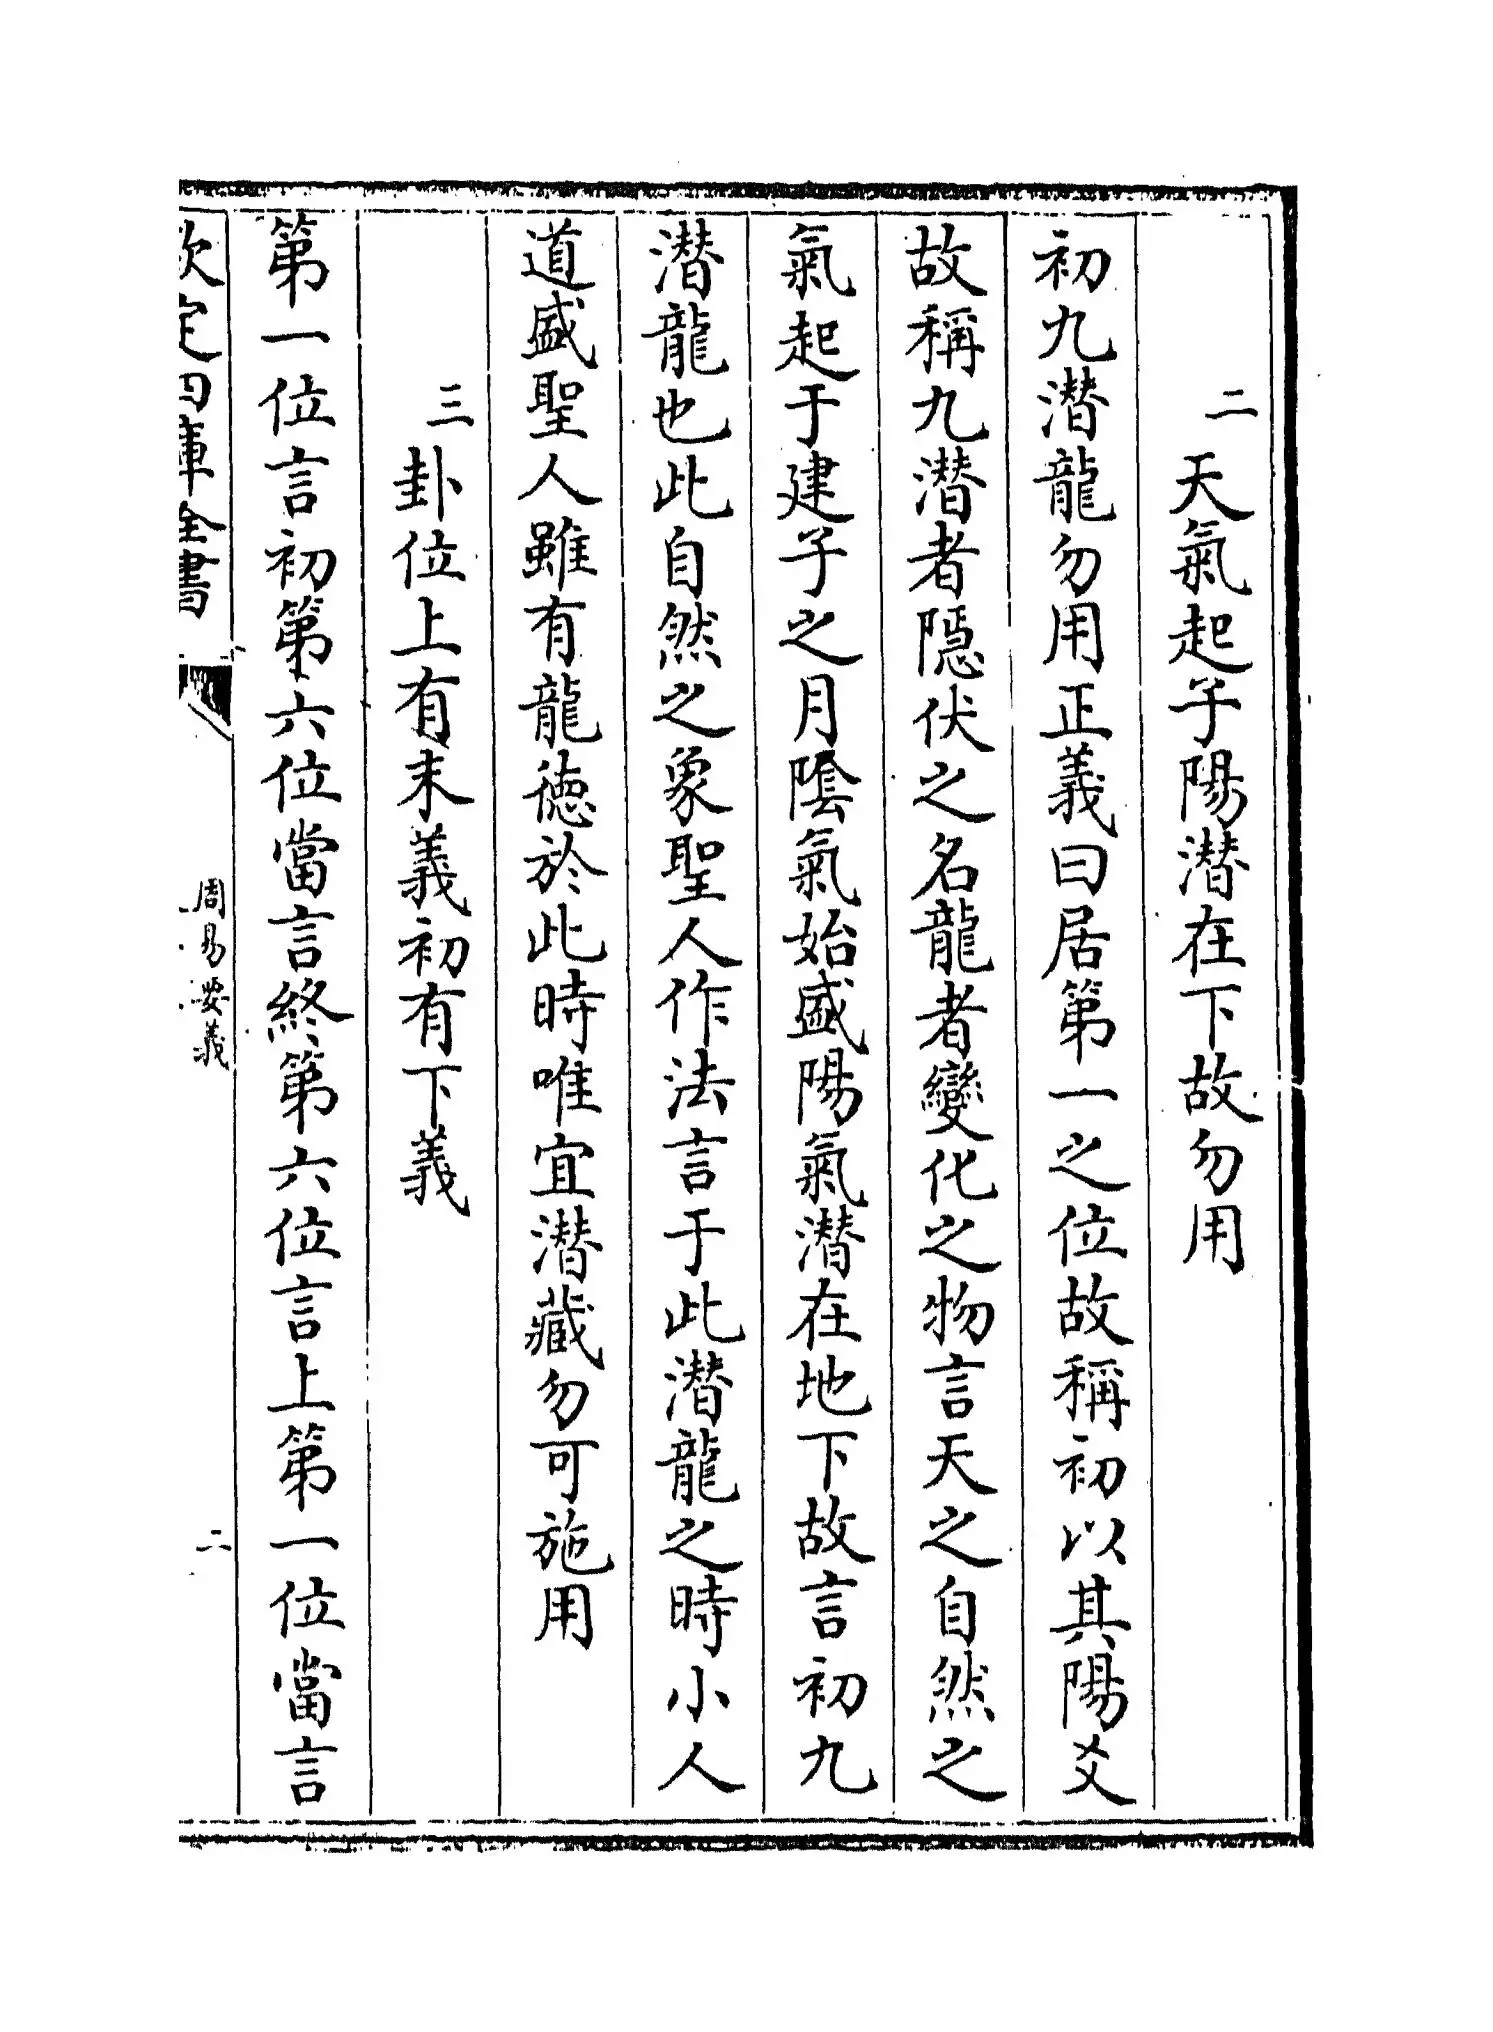 二天氣起子陽潛在下故勿用
初九潛龍勿用正義曰居第一之位故稱初以其陽爻
故稱九潛者隱伏之名龍者變化之物言天之自然之
氣起于建子之月陰氣始盛陽氣潛在地下故言初九
潛龍也此自然之象聖人作法言于此潛龍之時小人
道盛聖人雖有龍徳於此時唯宜潛藏勿可施用
三卦位上有末義初有下義
第一位言初第六位當言終第六位言上第一位當言
欽定四庫全書
周易要義
二